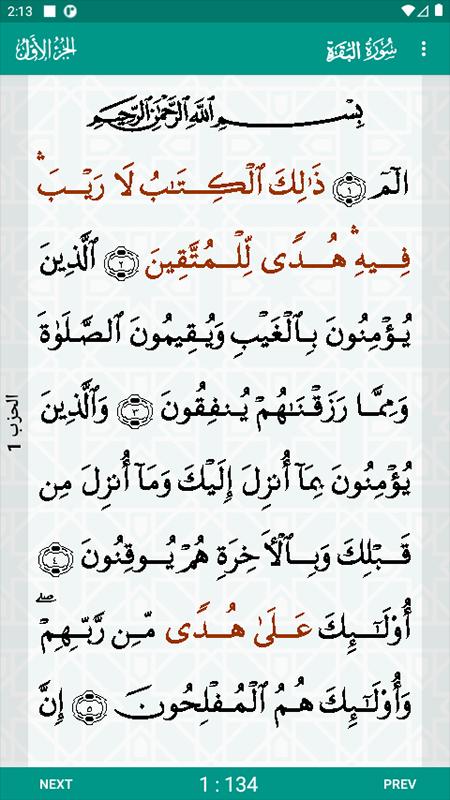 2:13
الجزء الأول سورة البقرة
بِسْمِ اللَّهِ الرَّحْمَٰنِ الرَّحِيمِ
الٓمٓ ١ ذَٰلِكَ ٱلْكِتَٰبُ لَا رَيْبَ ۛ
فِيهِ ۛ هُدًى لِّلْمُتَّقِينَ ٢ ٱلَّذِينَ
يُؤْمِنُونَ بِٱلْغَيْبِ وَيُقِيمُونَ ٱلصَّلَوٰةَ
وَمِمَّا رَزَقْنَٰهُمْ يُنفِقُونَ ٣ وَٱلَّذِينَ
يُؤْمِنُونَ بِمَآ أُنزِلَ إِلَيْكَ وَمَآ أُنزِلَ مِن
قَبْلِكَ وَبِٱلْأَخِرَةِ هُمْ يُوقِنُونَ ٤
أُو۟لَٰٓئِكَ عَلَىٰ هُدًى مِّن رَّبِّهِمْ ۖ
وَأُو۟لَٰٓئِكَ هُمُ ٱلْمُفْلِحُونَ ٥ إِنَّ
الحزب 1
NEXT 1 : 134 PREV